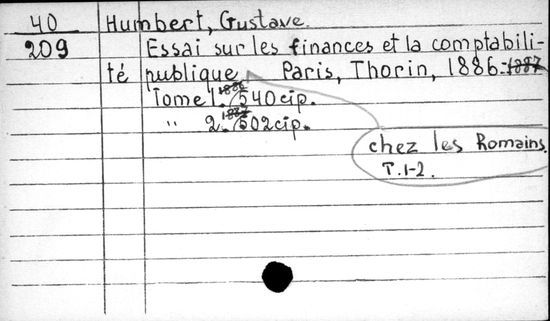 40 Humbert, Gustave.
209 Essai sur les finances et la comptabili-
té publique Paris, Thorin, 1886-1887
chez les Romains.
T. 1-2.
Tome 1. 1886 540 cip.
" 2. 1887 502 cip.